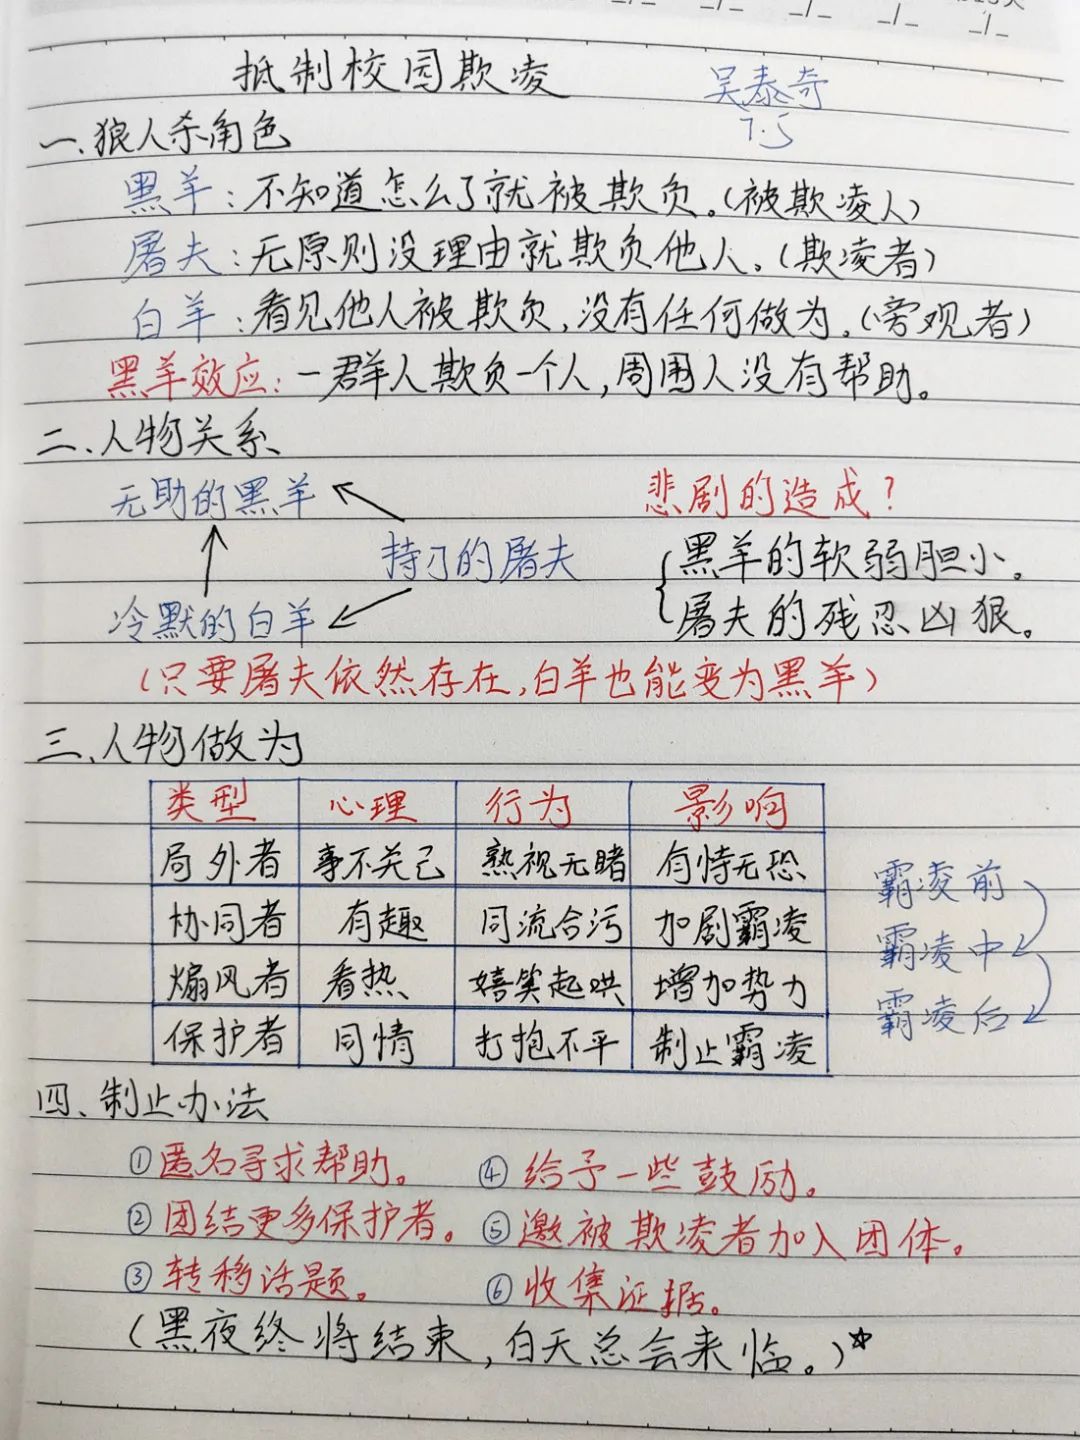 抵制校园欺凌
吴泰奇
7.5
一、狼人杀角色
黑羊：不知道怎么了就被欺负。（被欺凌人）
屠夫：无原则没理由就欺负他人。（欺凌者）
白羊：看见他人被欺负，没有任何做为。（旁观者）
黑羊效应：一群人欺负一个人，周围人没有帮助。
二、人物关系
无助的黑羊
持刀的屠夫
冷默的白羊
悲剧的造成？
黑羊的软弱胆小。
屠夫的残忍凶狠。
（只要屠夫依然存在，白羊也能变为黑羊）
三、人物做为
类型 心理 行为 影响
局外者 事不关己 熟视无睹 有恃无恐
协同者 有趣 同流合污 加剧霸凌
煽风者 看热 嬉笑起哄 增加势力
保护者 同情 打抱不平 制止霸凌
霸凌前
霸凌中
霸凌后
四、制止办法
①匿名寻求帮助。 ④给予一些鼓励。
②团结更多保护者。 ⑤邀被欺凌者加入团体。
③转移话题。 ⑥收集证据。
（黑夜终将结束，白天总会来临。）☆